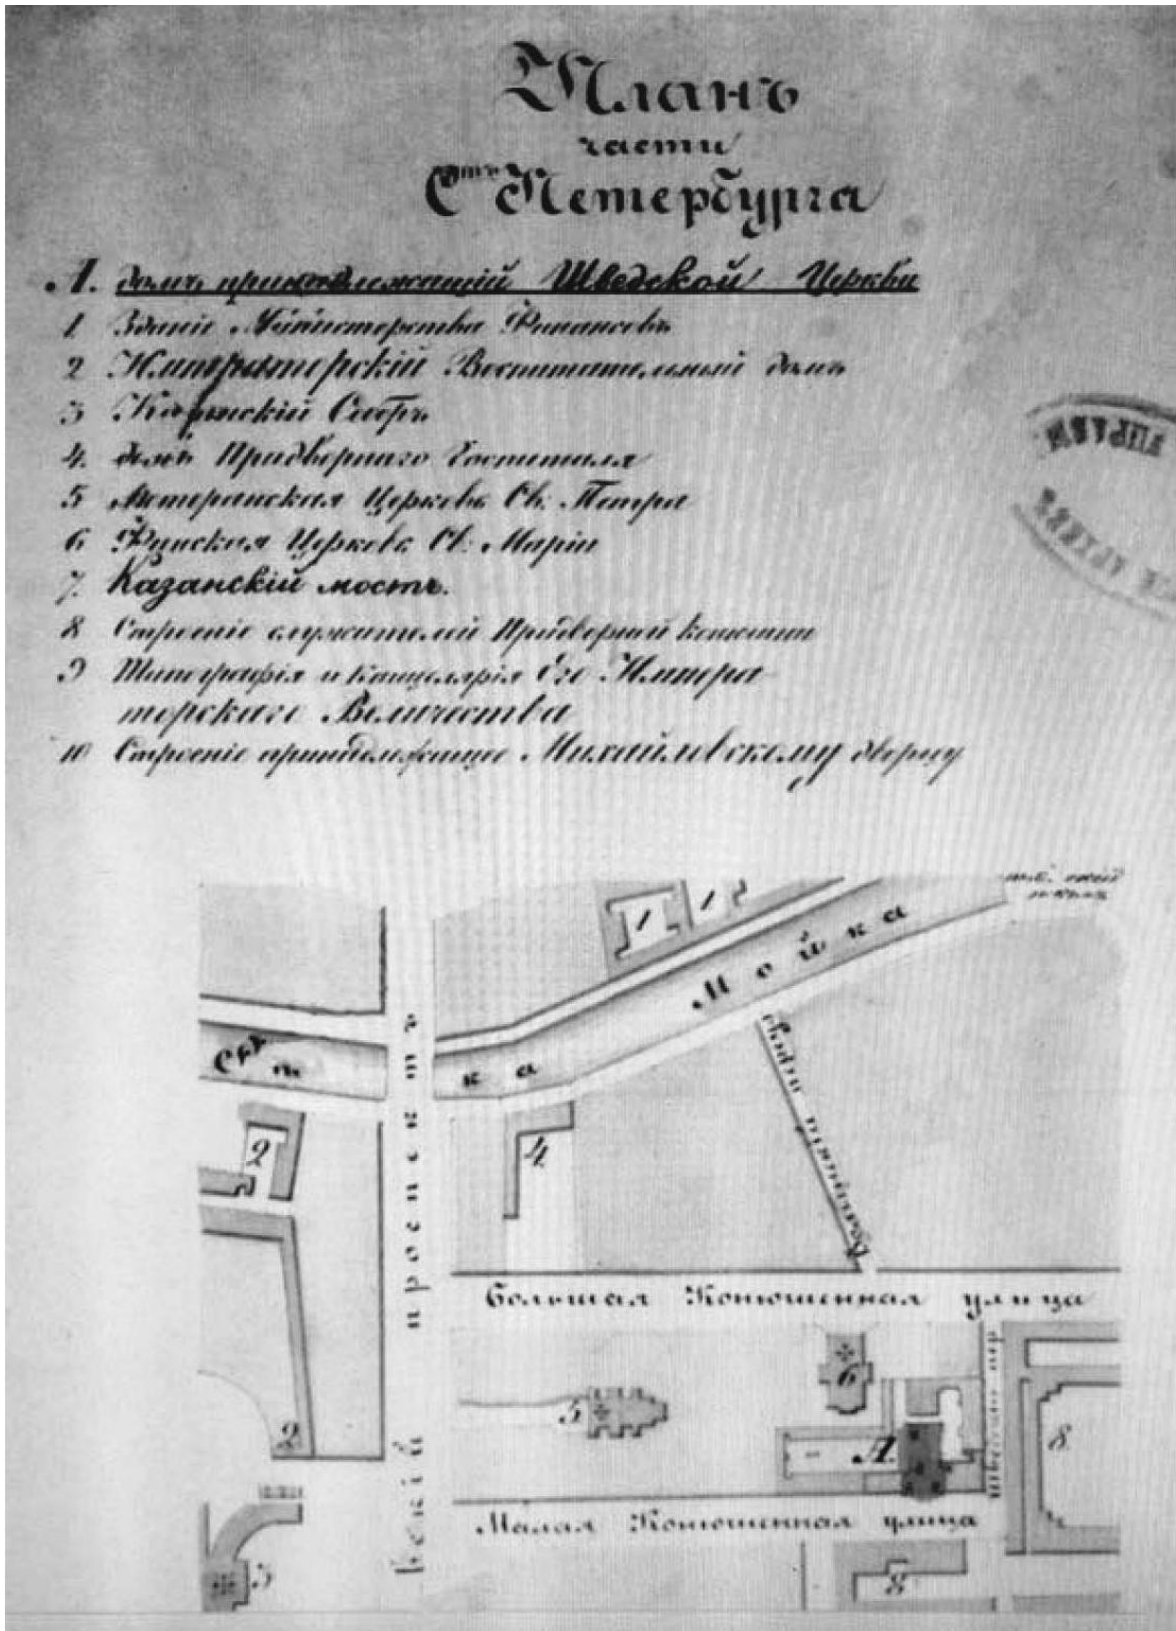 Планъ
части
С<sup>тъ</sup> Петербурга
А. домъ принадлежащій Шведской Церкви
1 Зданіе Министерства Финансовъ
2 Императорскій Воспитательный домъ
3 Казанскій Соборъ
4. домъ Придворнаго Госпиталя
5 Лютеранская Церковь Св. Петра
6 Финская Церковь Св. Маріи
7. Казанскій мостъ.
8 Строеніе служителей Придворной конюшни
9 Типографія и Канцелярія Его Импера
торскаго Величества
10 Строеніе принадлежащее Михайловскому дворцу
1
1
Мойка
река
2
4
проспектъ
переулокъ
Большая Конюшенная улица
6
5
А.
8
2
Невскій
Малая Конюшенная улица
3
8